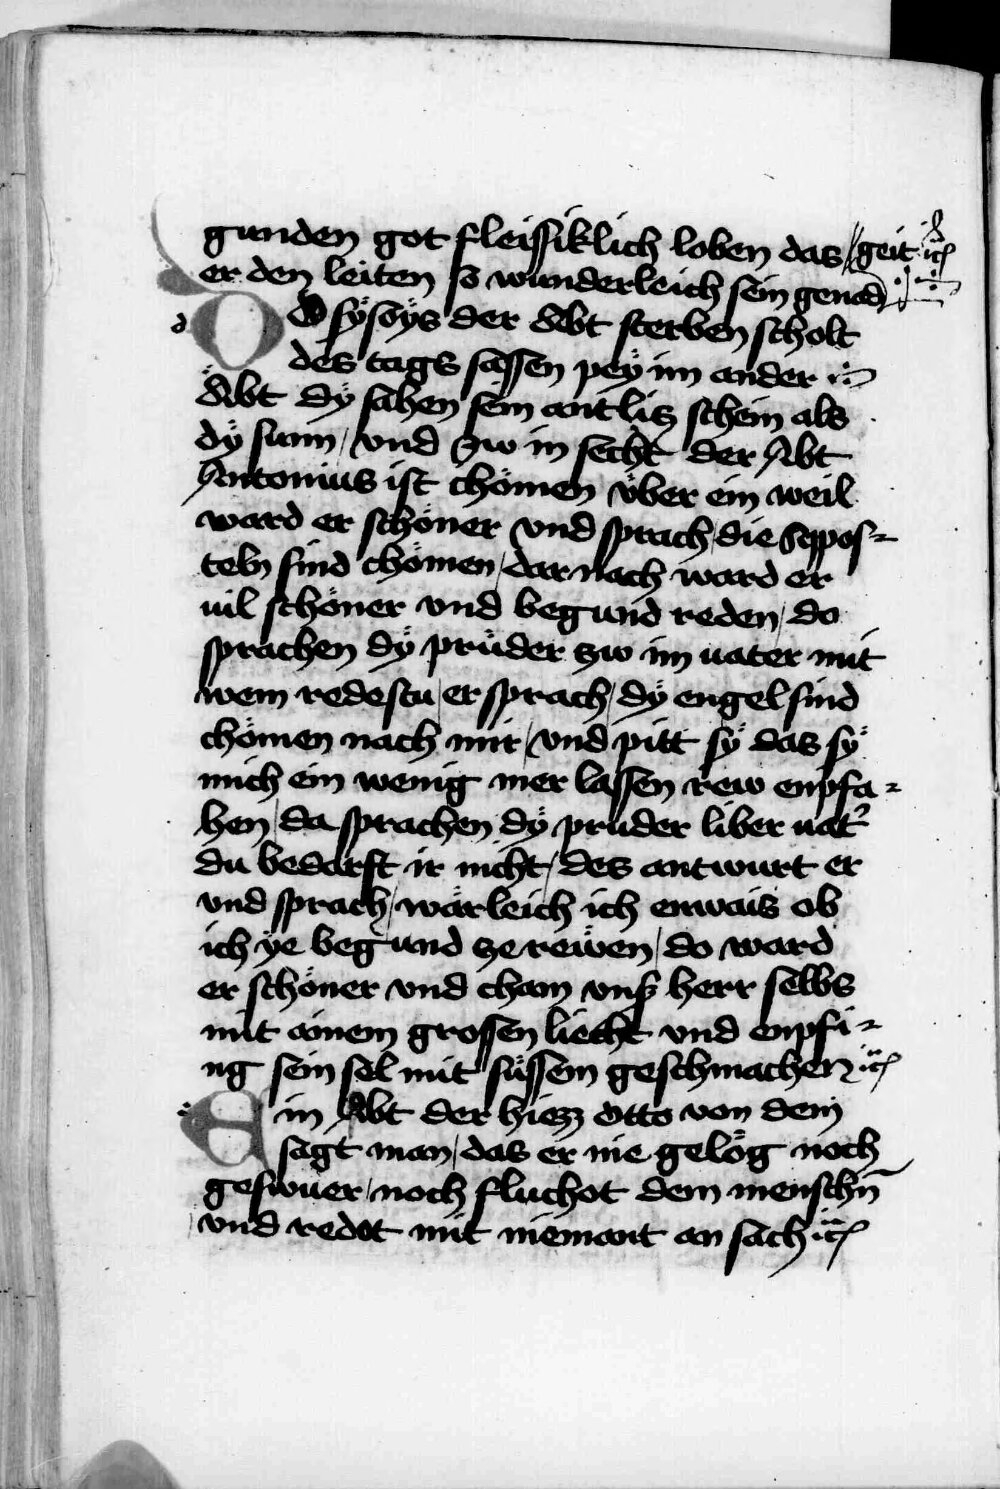 gunden got fleissiklich loben das / geit
er den leiten so wunderleich sein genod
Do sÿsoÿs der Abt sterben scholt
des tags sassen peÿ im ander
Abt dÿ sahen sein antlitz schein als
dÿ sunn / vnd zw in secht der Abt
Antonius ist chömen vber ein weil
ward er schöner vnd sprach / die Appos⸗
teln sind chömen / dar nach ward er
uil schöner vnd begund reden / do
sprachen dÿ prüder zw im uater mit
wem redestu / er sprach / dÿ engel sind
chömen nach mir / vnd pitt sÿ das sÿ
mich ein wenig mer lassen rew enpfa⸗
hen / da sprachen dÿ pruder liber uat'
du bedarfst ir nicht / des antwurt er
vnd sprach / wärleich ich enwais ob
ich ÿe begund ze rewen / do ward
er schöner vnd cham vnß herr selbs
mit ainem grossen liecht vnd enpfi⸗
ng sein sel mit süssem geschmachen
Ein Abt der hiezz otto von dem
sagt man / das er nie gelög noch
geswuer / noch fluchot dem menschn̄
vnd redot mit niemant an sach